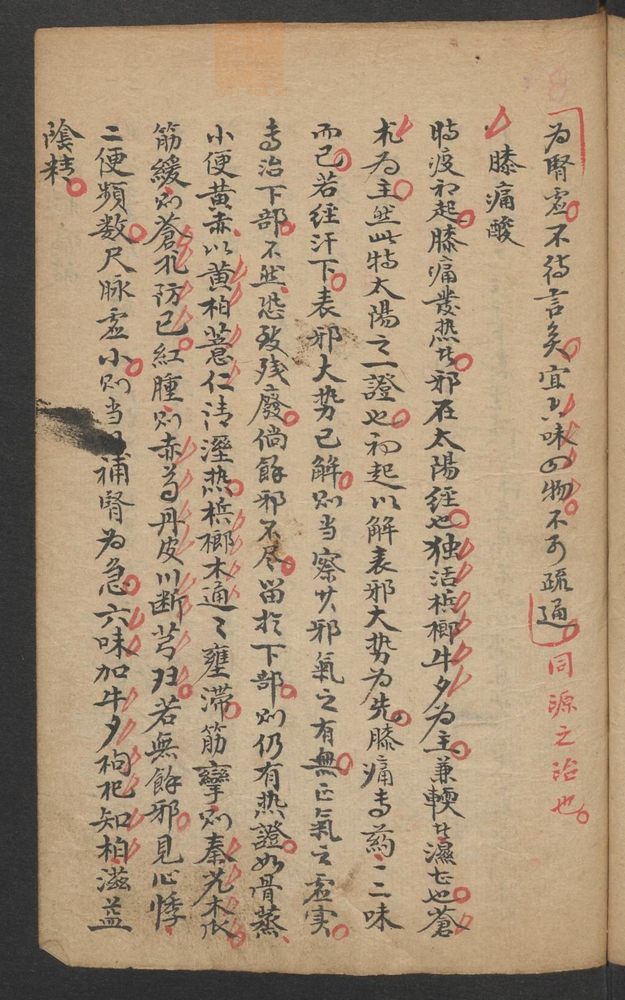 为腎虚不待言矣宜六味四物不可疏通同源之治也
膝痛酸
時疫初起膝痛發热者邪在太陽经也独活梹榔牛夕为主兼輭者濕也蒼
朮为主然此特太陽之一證也初起以解表邪大势为先膝痛专药一二味
而已若经汗下表邪大势已解则当察其邪氣之有無正氣之虚实
专治下部不然恐致残廢倘餘邪不尽留於下部则仍有热證如骨蒸
小便黄赤以黄柏薏仁清溼热梹榔木通通壅滞筋攣则秦艽木瓜
筋緩则蒼朮防己紅腫则赤芍丹皮川断芎归若無餘邪見心悸
二便頻数尺脉虚小则当補腎为急六味加牛夕枸杞知柏滋益
陰精